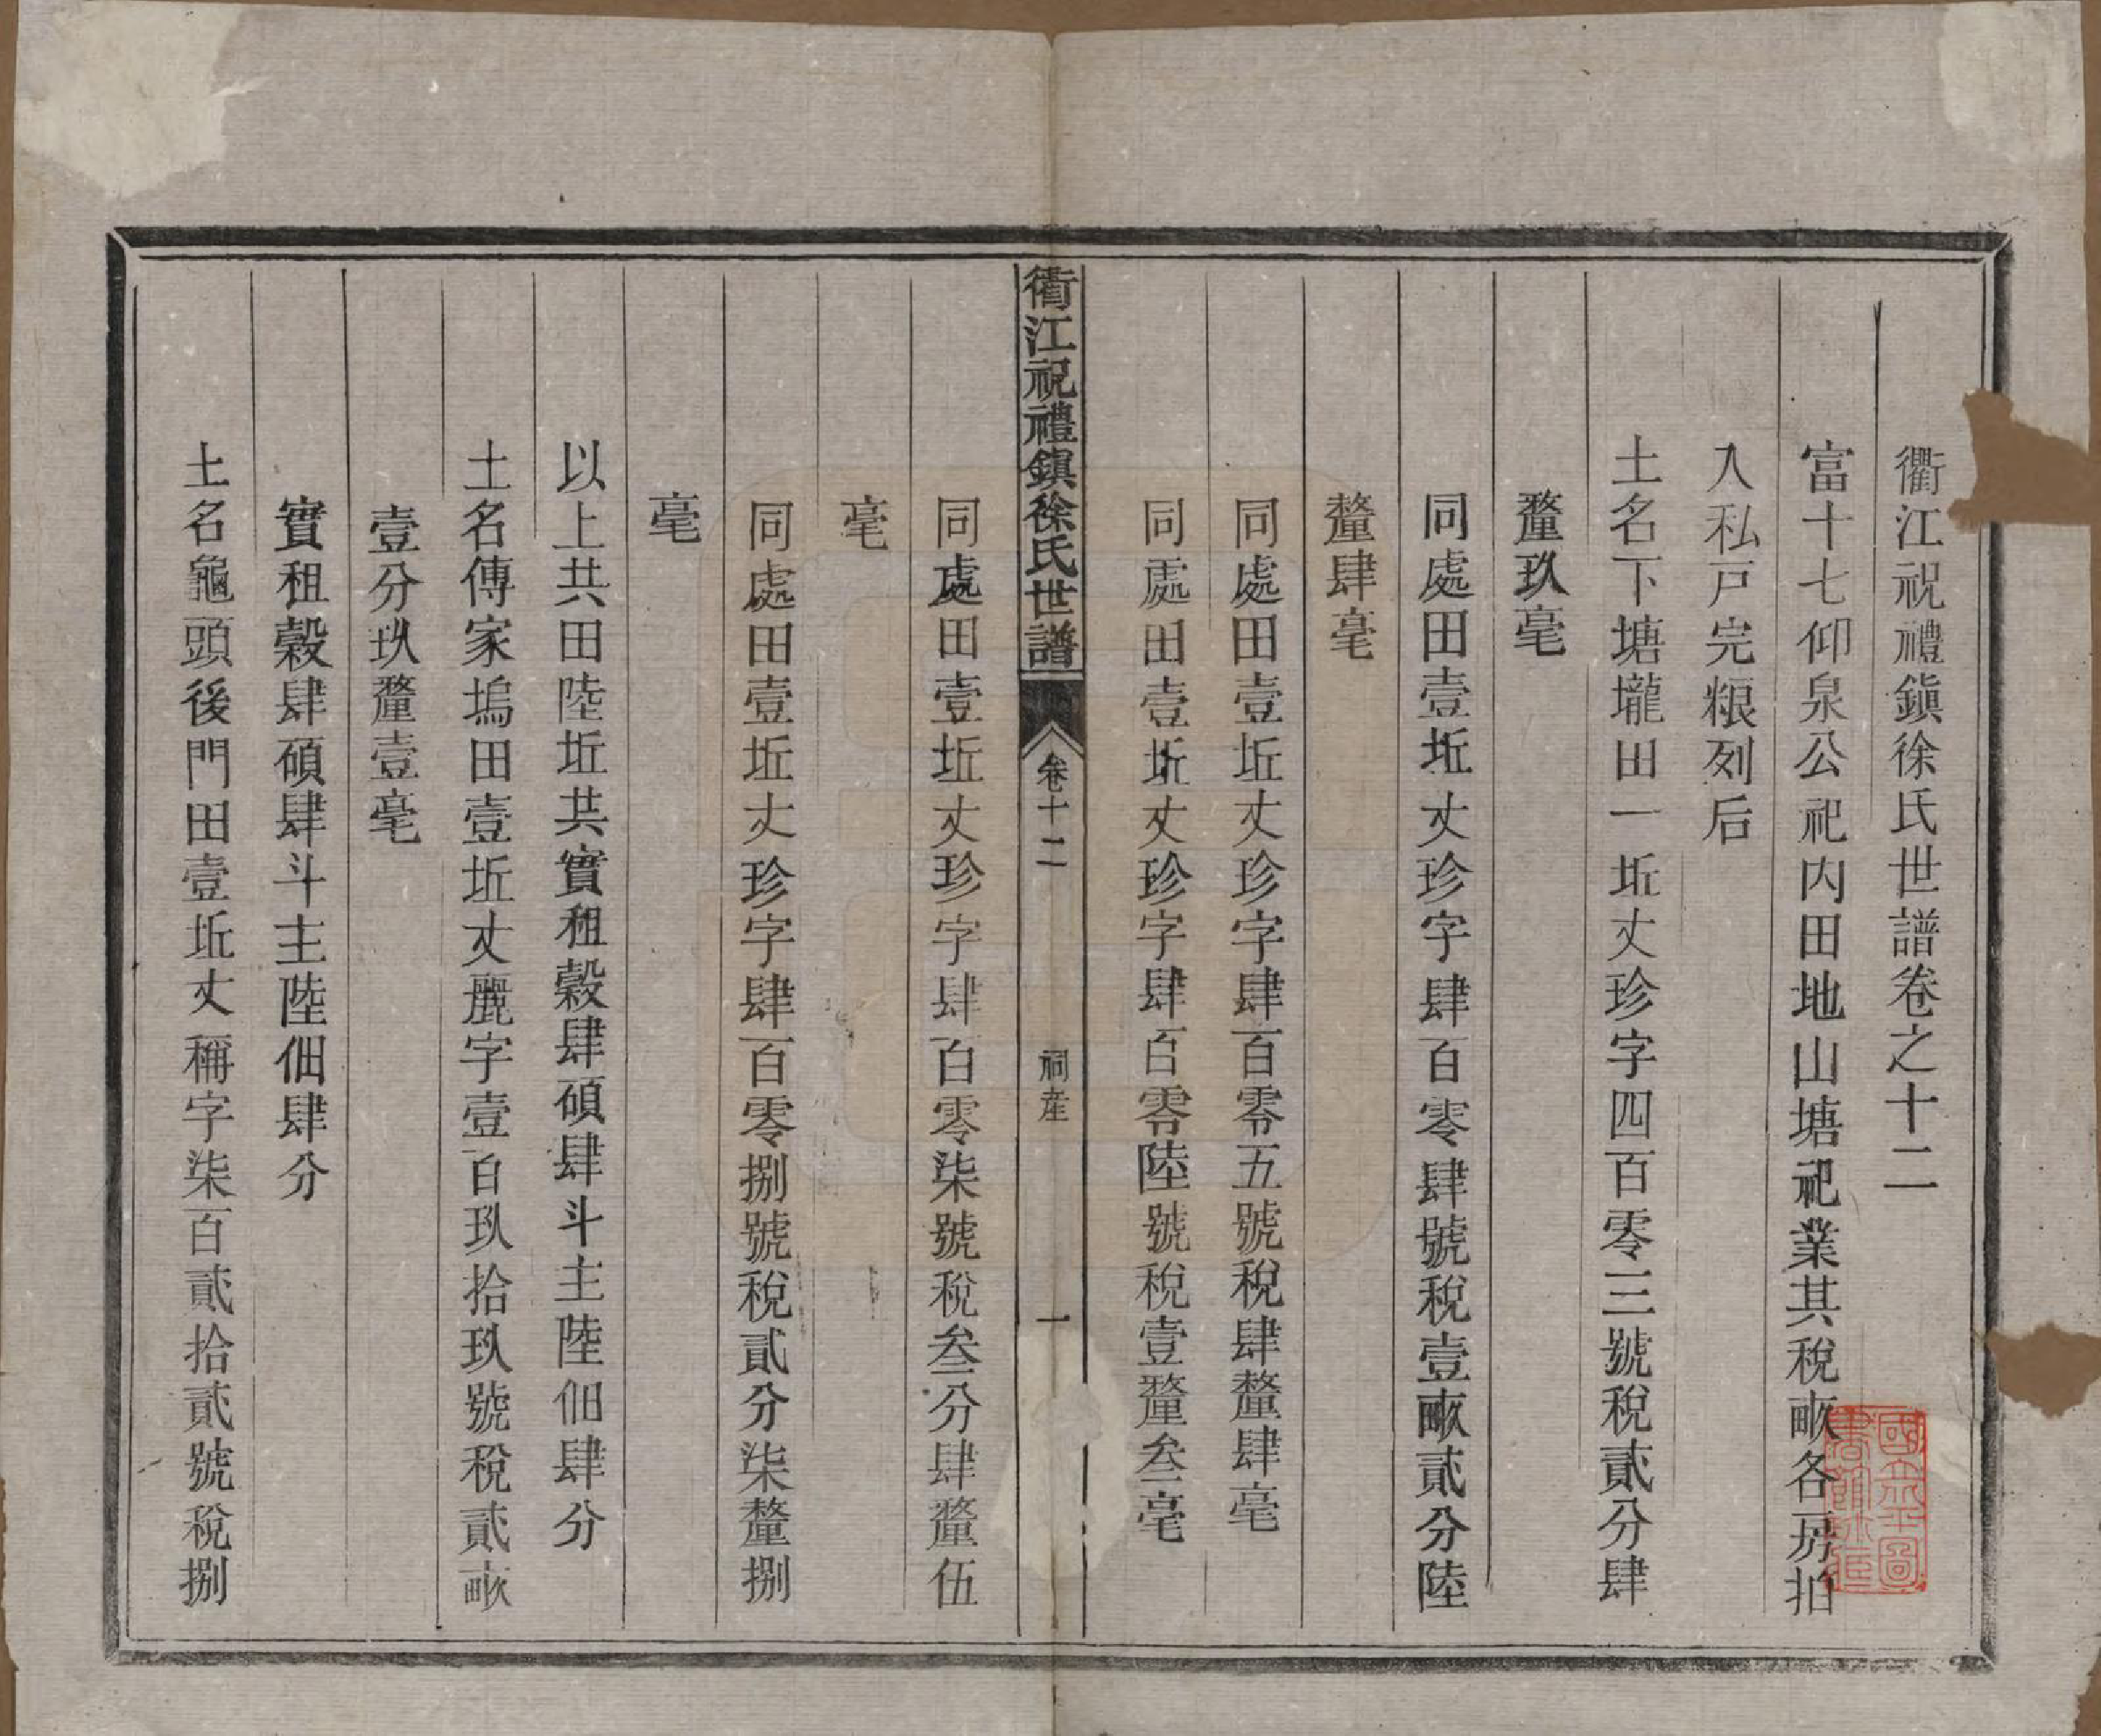 衢江祝禮鎭徐氏世譜卷之十二
富十七仰泉公祀内田地山塘祀業其稅畞各房拍
入私戸完粮列后
土名下塘壠田一坵丈珍字四百零三號稅貳分肆
釐玖毫
同處田壹坵丈珍字肆百零肆號稅壹畞貳分陸
釐肆毫
同處田壹坵丈珍字肆百零五號稅肆釐肆毫
同處田壹坵丈珍字肆百零陸號稅壹釐叁毫
衢江祝禮鎭徐氏世譜
卷十二
祠產
一
同處田壹坵丈珍字肆百零柒號稅叁分肆釐伍
毫
同處田壹坵丈珍字肆百零捌號稅貳分柒釐捌
毫
以上共田陸坵共實租穀肆碩肆斗主陸佃肆分
土名傅家塢田壹坵丈麗字壹百玖拾玖號稅貳畞
壹分玖釐壹毫
實租穀肆碩肆斗主陸佃肆分
土名龜頭後門田壹坵丈稱字柒百貳拾貳號稅捌
國立北平圖
書館珍藏